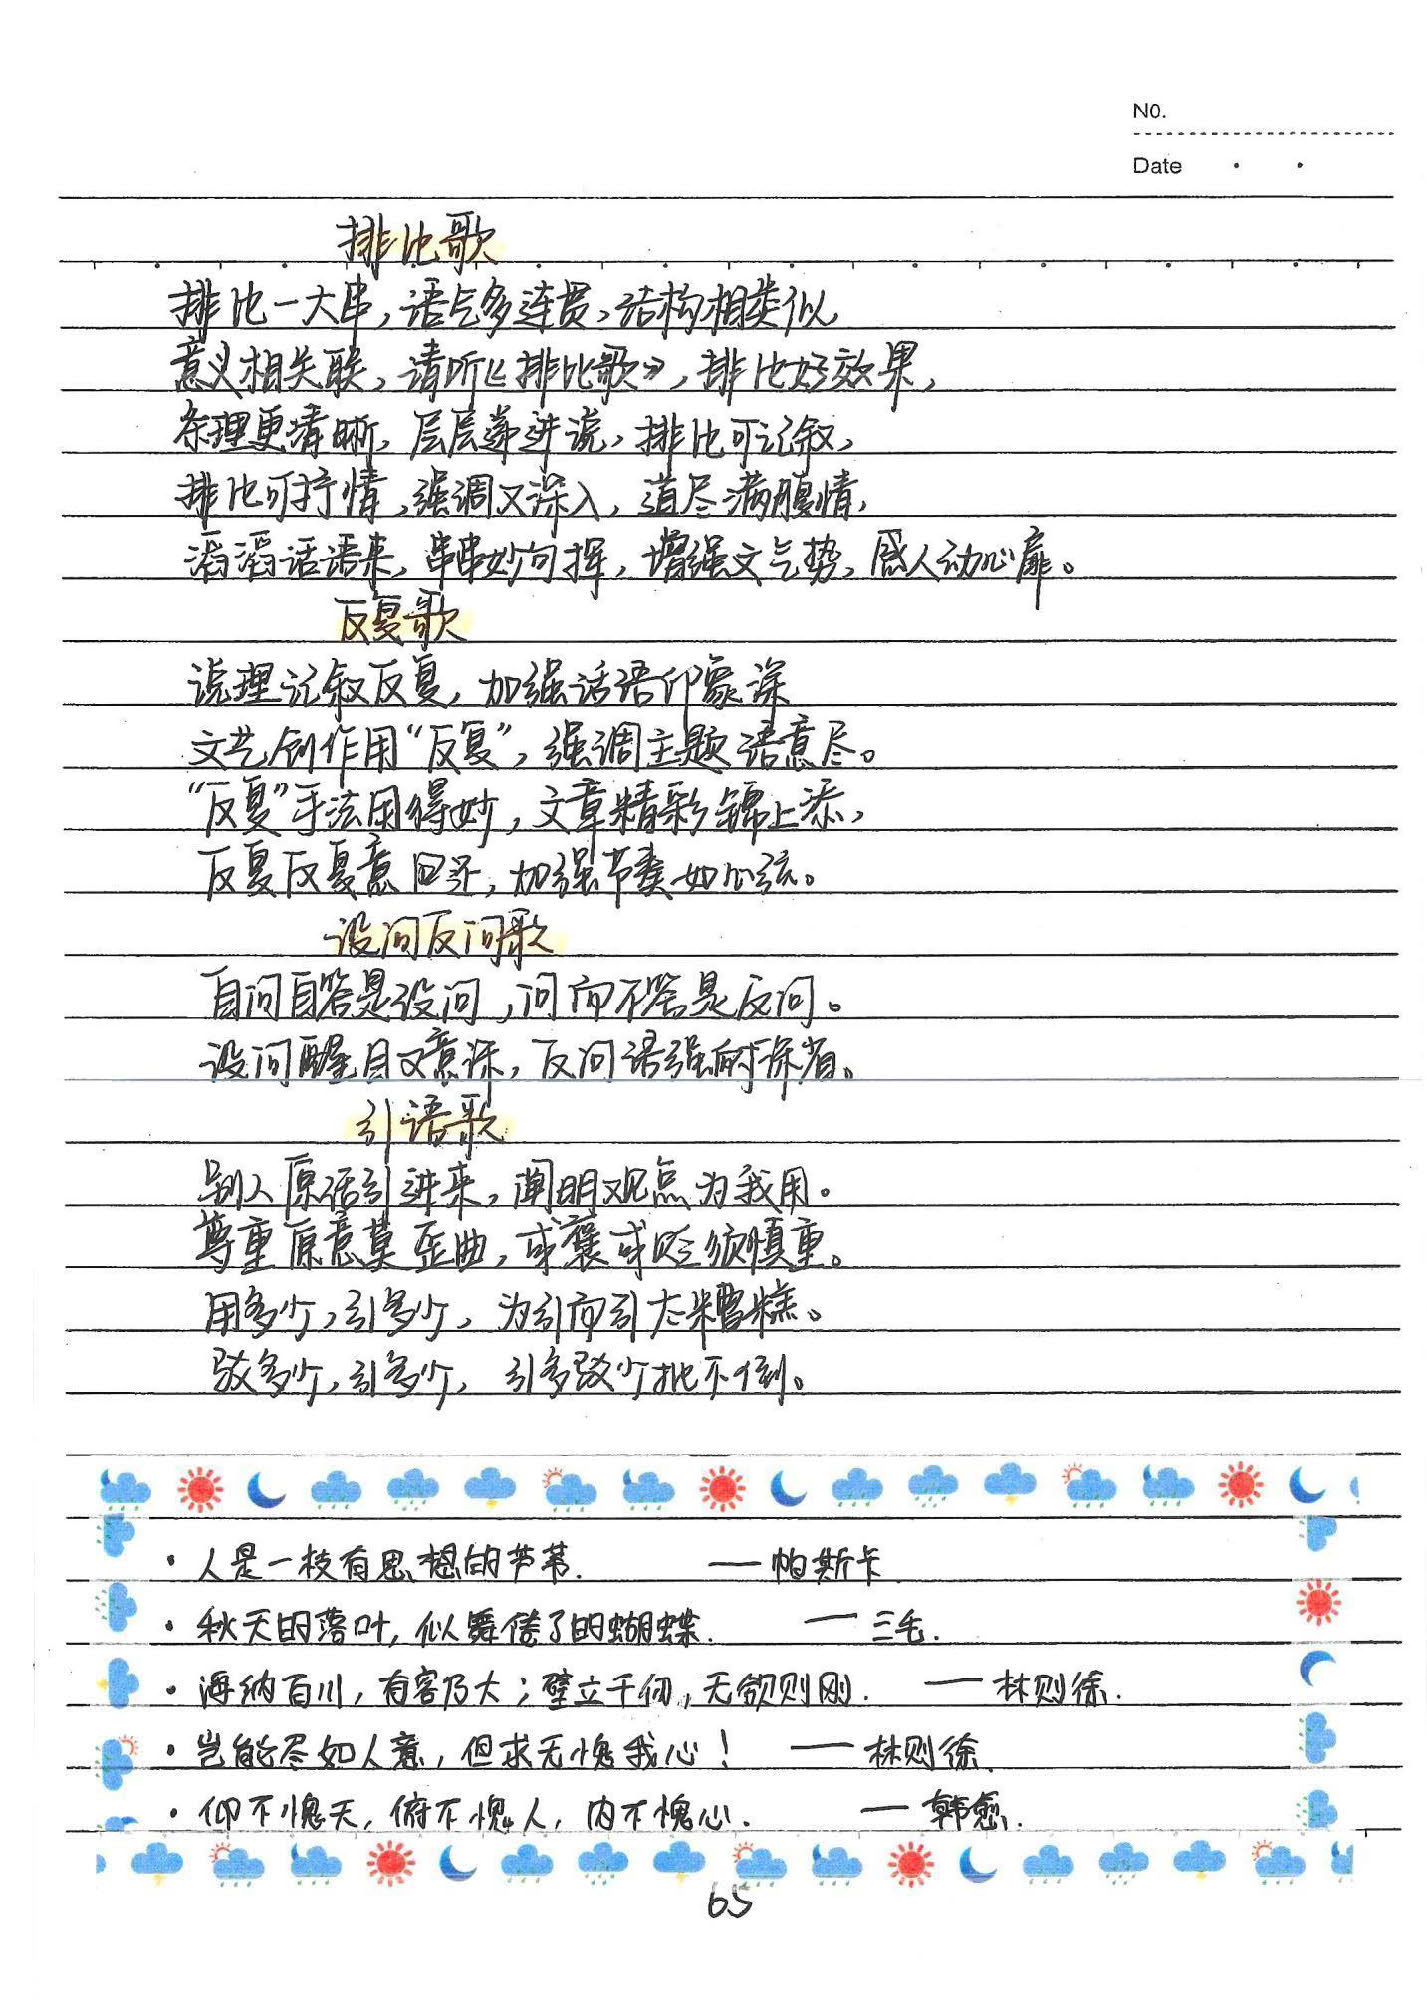 NO.
Date
排比歌
排比一大串，语气多连贯，结构相类似
意义相关联，请听《排比歌》，排比好效果，
条理更清晰，层层递进说，排比可记叙，
排比可抒情，强调又深入，道尽满腹情，
滔滔话语来，串串妙句挥，增强文气势，感人动心扉。
反复歌
说理记叙反复，加强话语印象深
文艺创作用“反复”，强调主题语意尽。
“反复”手法用得妙，文章精彩锦上添，
反复反复意回还，加强节奏如心弦。
设问反问歌
自问自答是设问，问而不答是反问。
设问醒目又意深，反问语强耐深省。
引语歌
别人原话引进来，阐明观点为我用。
尊重原意莫歪曲，或褒或贬须慎重。
用多少，引多少，为引而引太糟糕。
驳多少，引多少，引多驳少批不倒。
·人是一枝有思想的芦苇.——帕斯卡
·秋天的落叶，似舞倦了的蝴蝶.——三毛.
·海纳百川，有容乃大；壁立千仞，无欲则刚.——林则徐.
·岂能尽如人意，但求无愧我心！——林则徐.
·仰不愧天，俯不愧人，内不愧心.——韩愈.
65